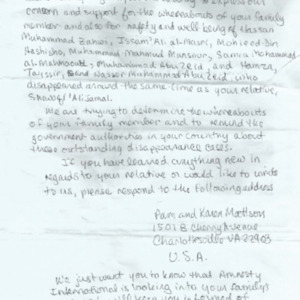 concern and support for the whereabouts of your family
member and also for safety and well being of Hassan
Muhammad Zahoi, Issam 'Ali al-Masri, Mohieed-bin
Hashisho, Muhammad Mahmud Mansour, Samir Mohamed
al-Mahmoudi, Muhammad Abu Zeid, and Hamza,
Tayssir, and Nasser Muhammad Abu Zeid, who
disappeared around the same time as your relative,
'Ali Jamal.
We are trying to determine the whereabouts
of your family member and to remind the
government authorities in your country about
these outstanding disappearance cases.
If you have learned anything new in
regards to your relative or would like to write
to us, please respond to the following address
Pam and Karen Mattson
1501 B Cherry Avenue
Charlottesville VA 22903
U.S.A.
We just want you to know that Amnesty
International is looking into your family's
will keep you informed of